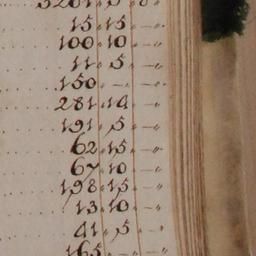 15 " 15 " — "
100 " 10 " — "
11 " 5 " — "
150 " — " — "
281 " 14 " — "
191 " 5 " — "
62 " 15 " — "
67 " 10 " — "
198 " 15 " — "
13 " 10 " — "
41 " 5 " — "
165 " — " — "